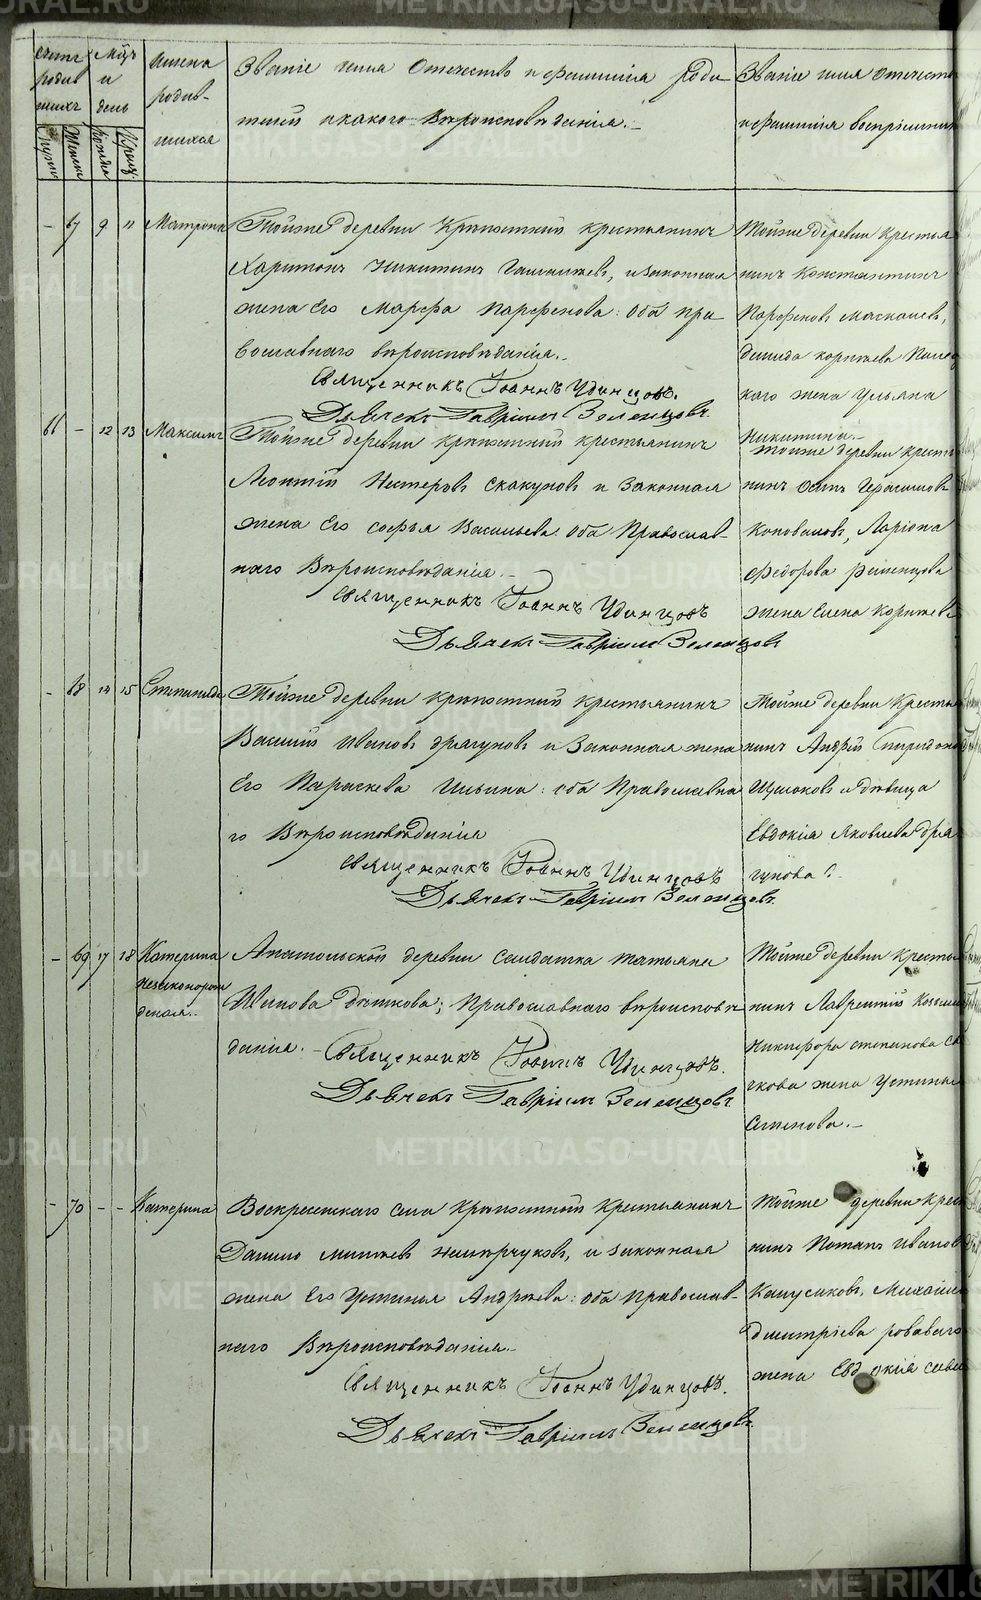 METRIKI.GASO-URAL.RU
Счетъ родившихся
Мцъ и день
Имена родив-шихся
Званіе имя Отечество и фамилія роди-
телей и какого Вѣроисповѣданія.
Званіе имя отечество
и фамилія воспріемник
Мужс Женск Рожде Крещ
– 67 9 11 Матрона
Тойже деревни Крѣпостный крестьянинъ
Харитонъ Никитинъ и законная
жена Его Марфа Парфенова: оба пра
вославнаго вѣроисповѣданія.
Священникъ Іоаннъ Удинцовъ.
Дьячекъ Гавріилъ Зеленцовъ
Тойже деревни крестья
нинъ Константинъ
Парфеновъ
жена Ульяна
Никитина.
66 – 12 13 Максимъ
Тойже деревни крѣпостный крестьянинъ
Леонтій Нестеровъ Скакуновъ и Законная
жена Его Софья Васильева оба Православ-
наго Вѣроисповѣданія.
Священникъ Іоаннъ Удинцовъ
Дьячекъ Гавріилъ Зеленцовъ
тойже деревни крестья
нинъ Осипъ Герасимовъ
Коноваловъ, Ларіона
Федорова
жена Елена
– 68 14 15 Степанида
Тойже деревни крѣпостный крестьянинъ
Василій Ивановъ Драгуновъ и Законная жена
Его Параскева Ильина: оба Православна
го Вѣроисповѣданія
Священникъ Іоаннъ Удинцовъ
Дьячекъ Гавріилъ Зеленцовъ.
Тойже деревни Кресть
нинъ Андрей Спиридоно
Щелоковъ и дѣвица
Евдокія Яковлева Дра
гунова
– 69 17 18 Катерина
незаконорож
деная.
деревни Солдатка Татьяна
Иванова Православнаго вѣроисповѣ
данія. – Священникъ Іоаннъ Удинцовъ.
Дьячекъ Гавріилъ Зеленцовъ
Тойже деревни Кресть
нинъ Лаврентій
Никифора Степанова
жена Устинья
Семенова.
– 70 – – Катерина
Воскресенскаго села Крѣпостный Крестьянинъ
Данило и законная
жена Его Устинья Андреева: оба Православ-
наго Вѣроисповѣданія.
Священникъ Іоаннъ Удинцовъ.
Дьячекъ Гавріилъ Зеленцовъ.
Тойже деревни крес
нинъ Потапъ Иванов
Михаила
Дмитріева
жена Евдокія